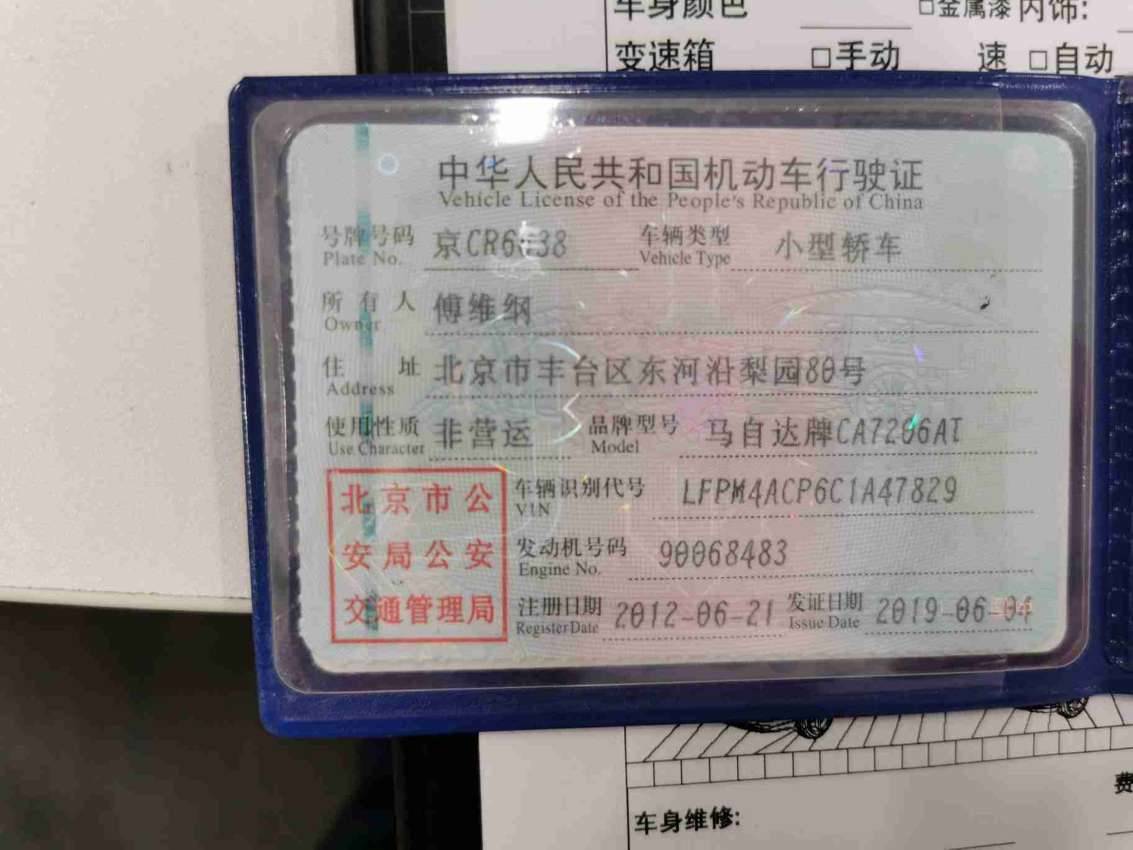 车身颜色 □金属漆 内饰:
变速箱 □手动 速 □自动
中华人民共和国机动车行驶证
Vehicle License of the People's Republic of China
号牌号码 京CR6038 车辆类型 小型轿车
Plate No. Vehicle Type
所有人 傅维纲
Owner
住址 北京市丰台区东河沿梨园80号
Address
使用性质 非营运 品牌型号 马自达牌CA7206AT
Use Character Model
北京市公 车辆识别代号 LFPM4ACP6C1A47829
VIN
安局公安 发动机号码 90068483
Engine No.
交通管理局 注册日期 2012-06-21 发证日期 2019-06-04
Register Date Issue Date
费
车身维修: